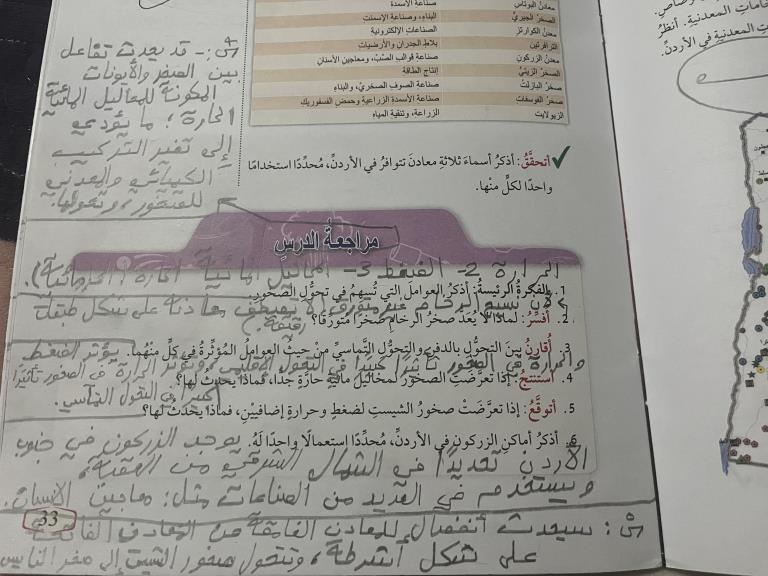 معادنُ البوتاس صناعةُ الأسمدة
الصخرُ الجيريُّ البناء، وصناعة الإسمنت
معدنُ الكوارتز الصناعات الإلكترونية
الترافرتين بلاط الجدران والأرضيات
معدنُ الزركون صناعة قوالب الصبّ، ومعاجين الأسنان
الصخرُ الزيتيُّ إنتاج الطاقة
صخرُ البازلت صناعة الصوف الصخريّ، والبناء
صخرُ الفوسفات صناعة الأسمدة الزراعية وحمض الفسفوريك
الزيولايت الزراعة، وتنقية المياه
خامات المعدنية. أنظرُ
المعدنية في الأردنّ.
س4:- قد يحدث تفاعل
بين الصخر والأيونات
المكونة للمحاليل المائية
الحارة؛ ما يؤدي
إلى تغير التركيب
الكيميائي والمعدني
للصخور، وتحولها.
✓ أتحقَّقُ: أذكرُ أسماءَ ثلاثةِ معادنَ تتوافرُ في الأردنِّ، مُحدِّدًا استخدامًا
واحدًا لكلٍّ منْها.
مراجعةُ الدرسِ
الحرارة 2- الضغط 3- المحاليل المائية الحارة (الحرمائية).
1. الفكرةُ الرئيسةُ: أذكرُ العواملَ التي تُسهِمُ في تحوُّلِ الصخورِ.
لأن نسيج الرخام غير متورق، لا تصطف معادنه على شكل طبقات
رقيقة.
2. أفسِّرُ: لماذا لا يُعَدُّ صخرُ الرخامِ صخرًا متورِّقًا؟
3. أقارنُ بينَ التحوُّلِ بالدفنِ والتحوُّلِ التَّماسيِّ مِنْ حيثُ العواملُ المُؤثِّرةُ في كلٍّ منْهُما.
يؤثر الضغط
والحرارة في الصخور تأثيرًا كبيرًا في التحول الإقليمي، وتؤثر الحرارة في الصخور تأثيرًا
كبيرًا في التحول التماسي.
4. أستنتجُ: إذا تعرَّضَتِ الصخورُ لمحاليلَ مائيةٍ حارّةٍ جدًا، فماذا يحدثُ لها؟
5. أتوقَّعُ: إذا تعرَّضَتْ صخورُ الشيستِ لضغطٍ وحرارةٍ إضافيَّينِ، فماذا يحدثُ لها؟
6. أذكرُ أماكنَ الزركونِ في الأردنِّ، مُحدِّدًا استعمالًا واحدًا لَهُ.
يوجد الزركون في جنوب
الأردن تحديدًا في الشمال الشرقي من العقبة،
ويستخدم في العديد من الصناعات مثل: معاجين الأسنان.
33
س5: سيحدث انفصال للمعادن الغامقة عن المعادن الفاتحة
على شكل أشرطة، وتتحول صخور الشيست إلى صخر النايس